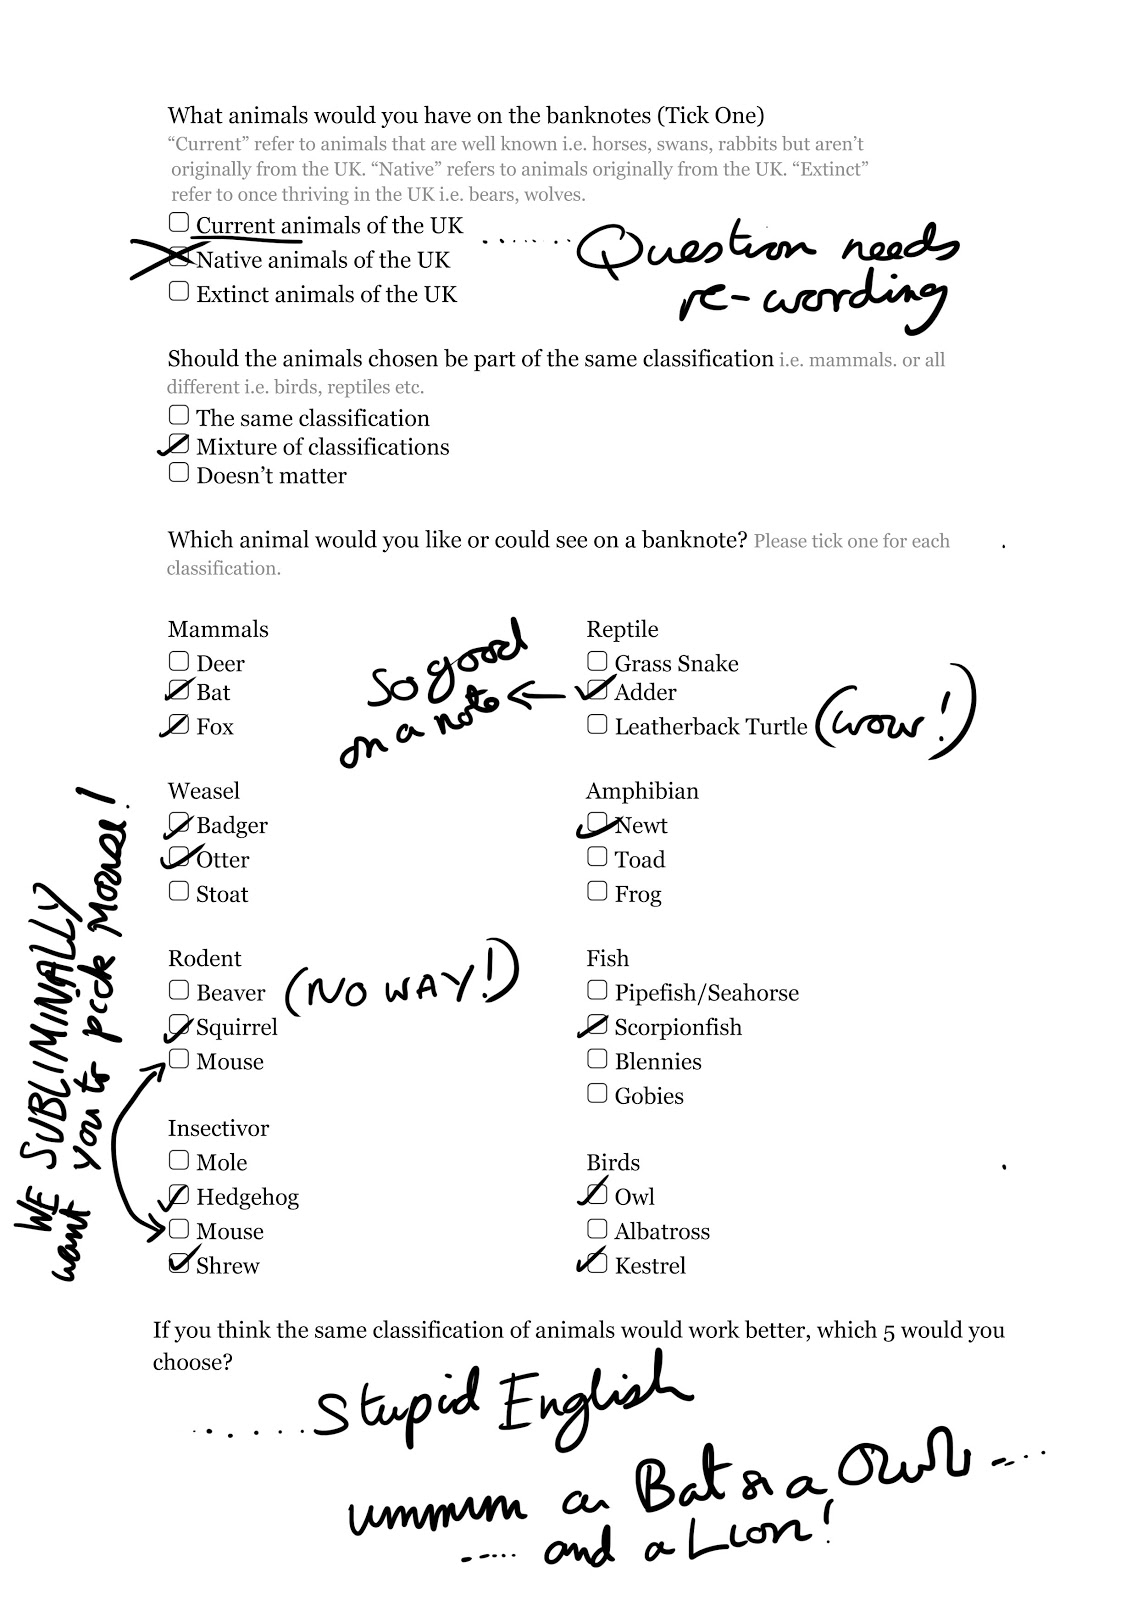 What animals would you have on the banknotes (Tick One)
“Current” refer to animals that are well known i.e. horses, swans, rabbits but aren’t
originally from the UK. “Native” refers to animals originally from the UK. “Extinct”
refer to once thriving in the UK i.e. bears, wolves.
Current animals of the UK
Native animals of the UK
Extinct animals of the UK
...... Question needs
re-wording
Should the animals chosen be part of the same classification i.e. mammals. or all
different i.e. birds, reptiles etc.
The same classification
Mixture of classifications
Doesn’t matter
Which animal would you like or could see on a banknote? Please tick one for each
classification.
Mammals
Deer
Bat
Fox
So good
on a note
Reptile
Grass Snake
Adder
Leatherback Turtle (wow!)
Weasel
Badger
Otter
Stoat
Amphibian
Newt
Toad
Frog
WE SUBLIMINALLY
want you to pick Mouse!
Rodent
Beaver (NO WAY!)
Squirrel
Mouse
Fish
Pipefish/Seahorse
Scorpionfish
Blennies
Gobies
Insectivor
Mole
Hedgehog
Mouse
Shrew
Birds
Owl
Albatross
Kestrel
If you think the same classification of animals would work better, which 5 would you
choose?
...... Stupid English
ummm a Bat or a Owl ....
.... and a Lion!